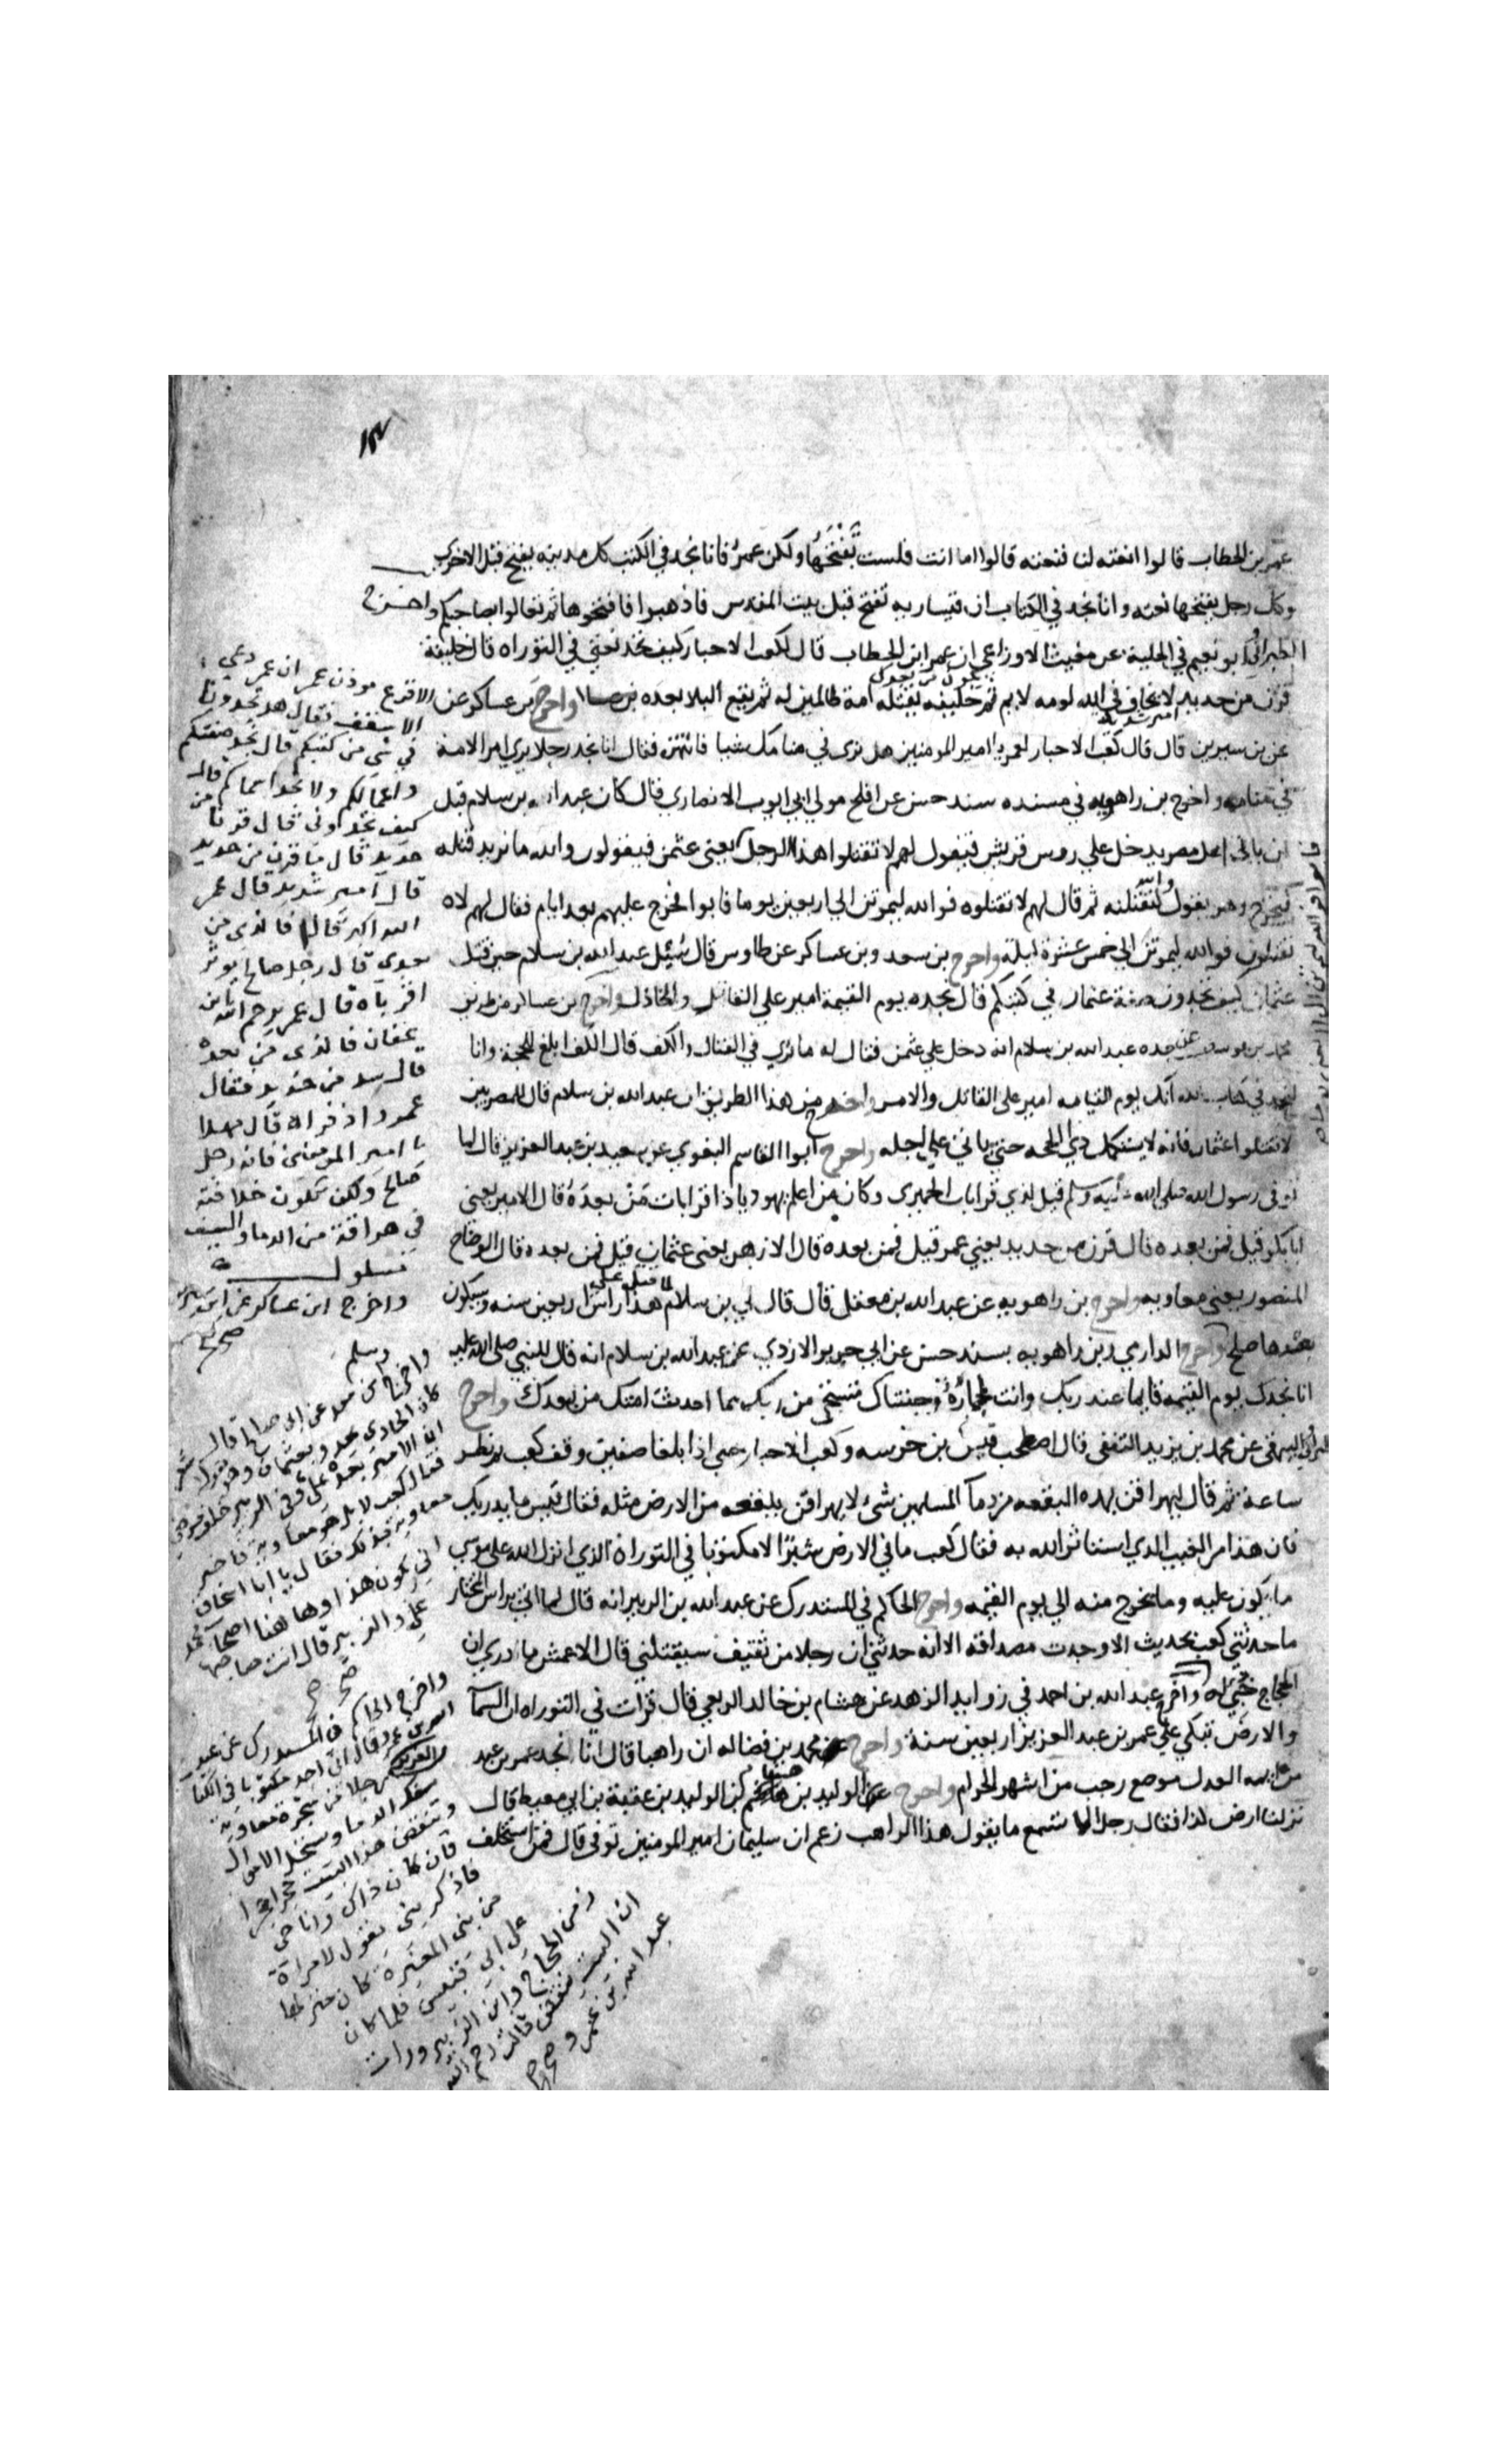 عمر بن الخطاب قالوا انعته لنا فنعته قالوا اما انت فلست تفتحها ولكن عمر فانا نجد في الكتب كل مدينه يفتح قبل الاخرى
وكل رجل يفتحها نعته وانا نجد في الكتاب ان قيساريه تفتح قبل بيت المقدس فاذهبوا فافتحوها ثم تعالوا بصاحبكم واخرج
الطبراني وابو نعيم في الحلية عن مغيث الاوزاعي ان عمر ابن الخطاب قال لكعب الاحبار كيف تجد نعتي في التوراه قال خليفة
قرن من حديد امير شديد لا يخاف في الله لومه لايم ثم يكون من بعدك خليفه يقتله امة ظالمين له ثم يقع البلا بعده واخرج بن عساكر عن الاقرع موذن عمر ان عمر دعي
عن بن سيرين قال قال كعب الاحبار لعمر يا امير المومنين هل ترى في منامك شيا فانتهره فقال انا نجد رجلا يري امر الامة
في منامه واخرج بن راهويه في مسنده بسند حسن عن افلح مولي ابي ايوب الانصاري قال كان عبد الله بن سلام قبل
ان ياتي اهل مصر يدخل علي روس قريش فيقول لهم لا تقتلوا هذا الرجل يعني عثمن فيقولون والله ما نريد قتله
فيخرج وهو يقول والله لتقتلنه ثم قال لهم لا تقتلوه فوالله ليموتن الي اربعين يوما فابوا فخرج عليهم بعد ايام فقال لهم لا
تقتلوه فوالله ليموتن الي خمس عشرة ليلة واخرج بن سعد وبن عساكر عن طاوس قال سئل عبد الله بن سلام حين قتل
عثمان كيف تجدون صفة عثمان في كتبكم قال نجده يوم القيمة امير علي القاتل والخاذل واخرج بن عساكر من طريق
محمد بن يوسف عن جده عبد الله بن سلام انه دخل علي عثمن فقال له ما تري في القتال والكف قال الكف ابلغ للحجة وانا
لنجد في كتاب الله انك يوم القيامه امير على القاتل والامر واخرج من هذا الطريق ان عبد الله بن سلام قال للمصريين
لا تقتلوا عثمان فانه لا يستكمل ذي الحجه حتى ياتي علي اجله واخرج ابوا القاسم البغوي عن سعيد بن عبد العزيز قال لما
توفى رسول الله صلى الله عليه وسلم قيل لذي قرابات الحميري وكان من اعلم يهود يا ذا قرابات من بعده قال الامين يعني
ابا بكر قيل فمن بعده قال قرن من حديد يعني عمر قيل فمن بعده قال الازهر يعني عثمان قيل فمن بعده قال الوضاح
المنصور يعني معاويه واخرج بن راهويه عن عبد الله بن معقل قال قال لي بن سلام لما قتل علي هذا راس اربعين سنه وسيكون
عندها صلح واخرج الدارمي وبن راهويه بسند حسن عن ابي حرير الازدي عن عبد الله بن سلام انه قال للنبي صلى الله عليه وسلم
انا نجدك يوم القيمه قايما عند ربك وانت محمارة وجنتاك مستحي من ربك مما احدثت امتك من بعدك واخرج
الطبراني والبيهقي عن محمد بن يزيد الثقفي قال اصطحب قيس بن خرشه وكعب الاحبار حتي اذا بلغا صفين وقف كعب ثم نظر
ساعة ثم قال ليهراقن بهذه البقعه من دما المسلمين شئ لا يهراق ببقعه من الارض مثله فقال قيس ما يدريك
فان هذا من الغيب الذي استاثر الله به فقال كعب ما في الارض شبرا الا مكتوبا في التوراة الذي انزل الله على موسي
ما يكون عليه وما يخرج منه الي يوم القيمه واخرج الحاكم في المستدرك عن عبد الله بن الزبير انه قال لما اتي براس المختار
ما حدثني كعب بحديث الا وجدت مصداقه الا انه حدثني ان رجلا من ثقيف سيقتلني قال الاعمش ما دري ان
الحجاج خبي له واخرج عبد الله بن احمد في زوايد الزهد عن هشام بن خالد الربعي قال قرات في التوراه ان السما
والارض تبكي علي عمر بن عبد العزيز اربعين سنة واخرج عن محمد بن فضاله ان راهبا قال انا نجد عمر بن عبد
من ايمه العدل موضع رجب من اشهر الحرام واخرج عن الوليد بن هشام بن الوليد بن عقبة بن ابي معيط قال
نزلنا ارض كذا فقال رجل الا تسمع ما يقول هذا الراهب زعم ان سليمان امير المومنين توفى قال فمن استخلف
الاسقف فقال هل تجدونا
في شي من كتبكم قال نجد صفتكم
واعمالكم ولا نجد اسماكم قال
كيف تجدوني قال قرنا من
حديد قال ما قرن من حديد
قال امير شديد قال عمر
الله اكبر قال فالذى من
بعدى قال رجل صالح يوثر
اقرباه قال عمر يرحم الله بن
عفان فالذى من بعده
قال صدء من حديد فقال
عمر وا ذفراه قال مهلا
يا امير المومنين فانه رجل
صالح ولكن تكون خلافته
في هراقة من الدما والسيف
مسلول
واخرج ابن عساكر عن
صح
واخرج بن سعد عن ابي صالح قال
كان الحادي يحدو بعثمان وهو يقول شعر
ان الامير بعده علي وفي الزبير خلف مرضي
فقال كعب لا بل هو معاوية فاخبر
معاوية بذلك فقال يا ابا اسحاق
اني يكون هذا وها هنا اصحاب محمد
علي والزبير قال انت صاحبها
صح
واخرج الحاكم في المستدرك عن عبد
الله بن عمرو قال اني اجد مكتوبا في الكتاب
رجلا من شجرة معاوية
يسفك الدما ويستحل الاموال
وينقض هذا البيت حجرا حجرا
فان كان ذاك وانا حي
فاذكريني يقول لامراة
من بني المغيرة كان منزلها
على ابي قبيس فلما كان
زمن الحجاج وابن الزبير ورات
ان البيت ينقض قالت رحم الله
عبد الله بن عمرو صح